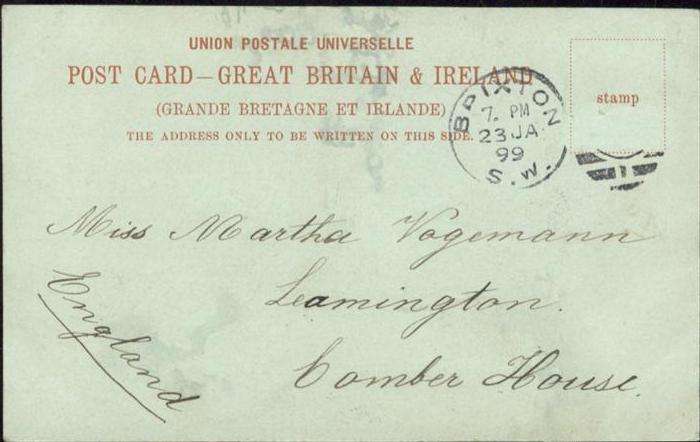 UNION POSTALE UNIVERSELLE
POST CARD—GREAT BRITAIN & IRELAND
(GRANDE BRETAGNE ET IRLANDE)
THE ADDRESS ONLY TO BE WRITTEN ON THIS SIDE.
stamp
BRIXTON
7. PM
23 JA
99
S.W.
Miss Martha Vogemann
Leamington.
Comber House.
England